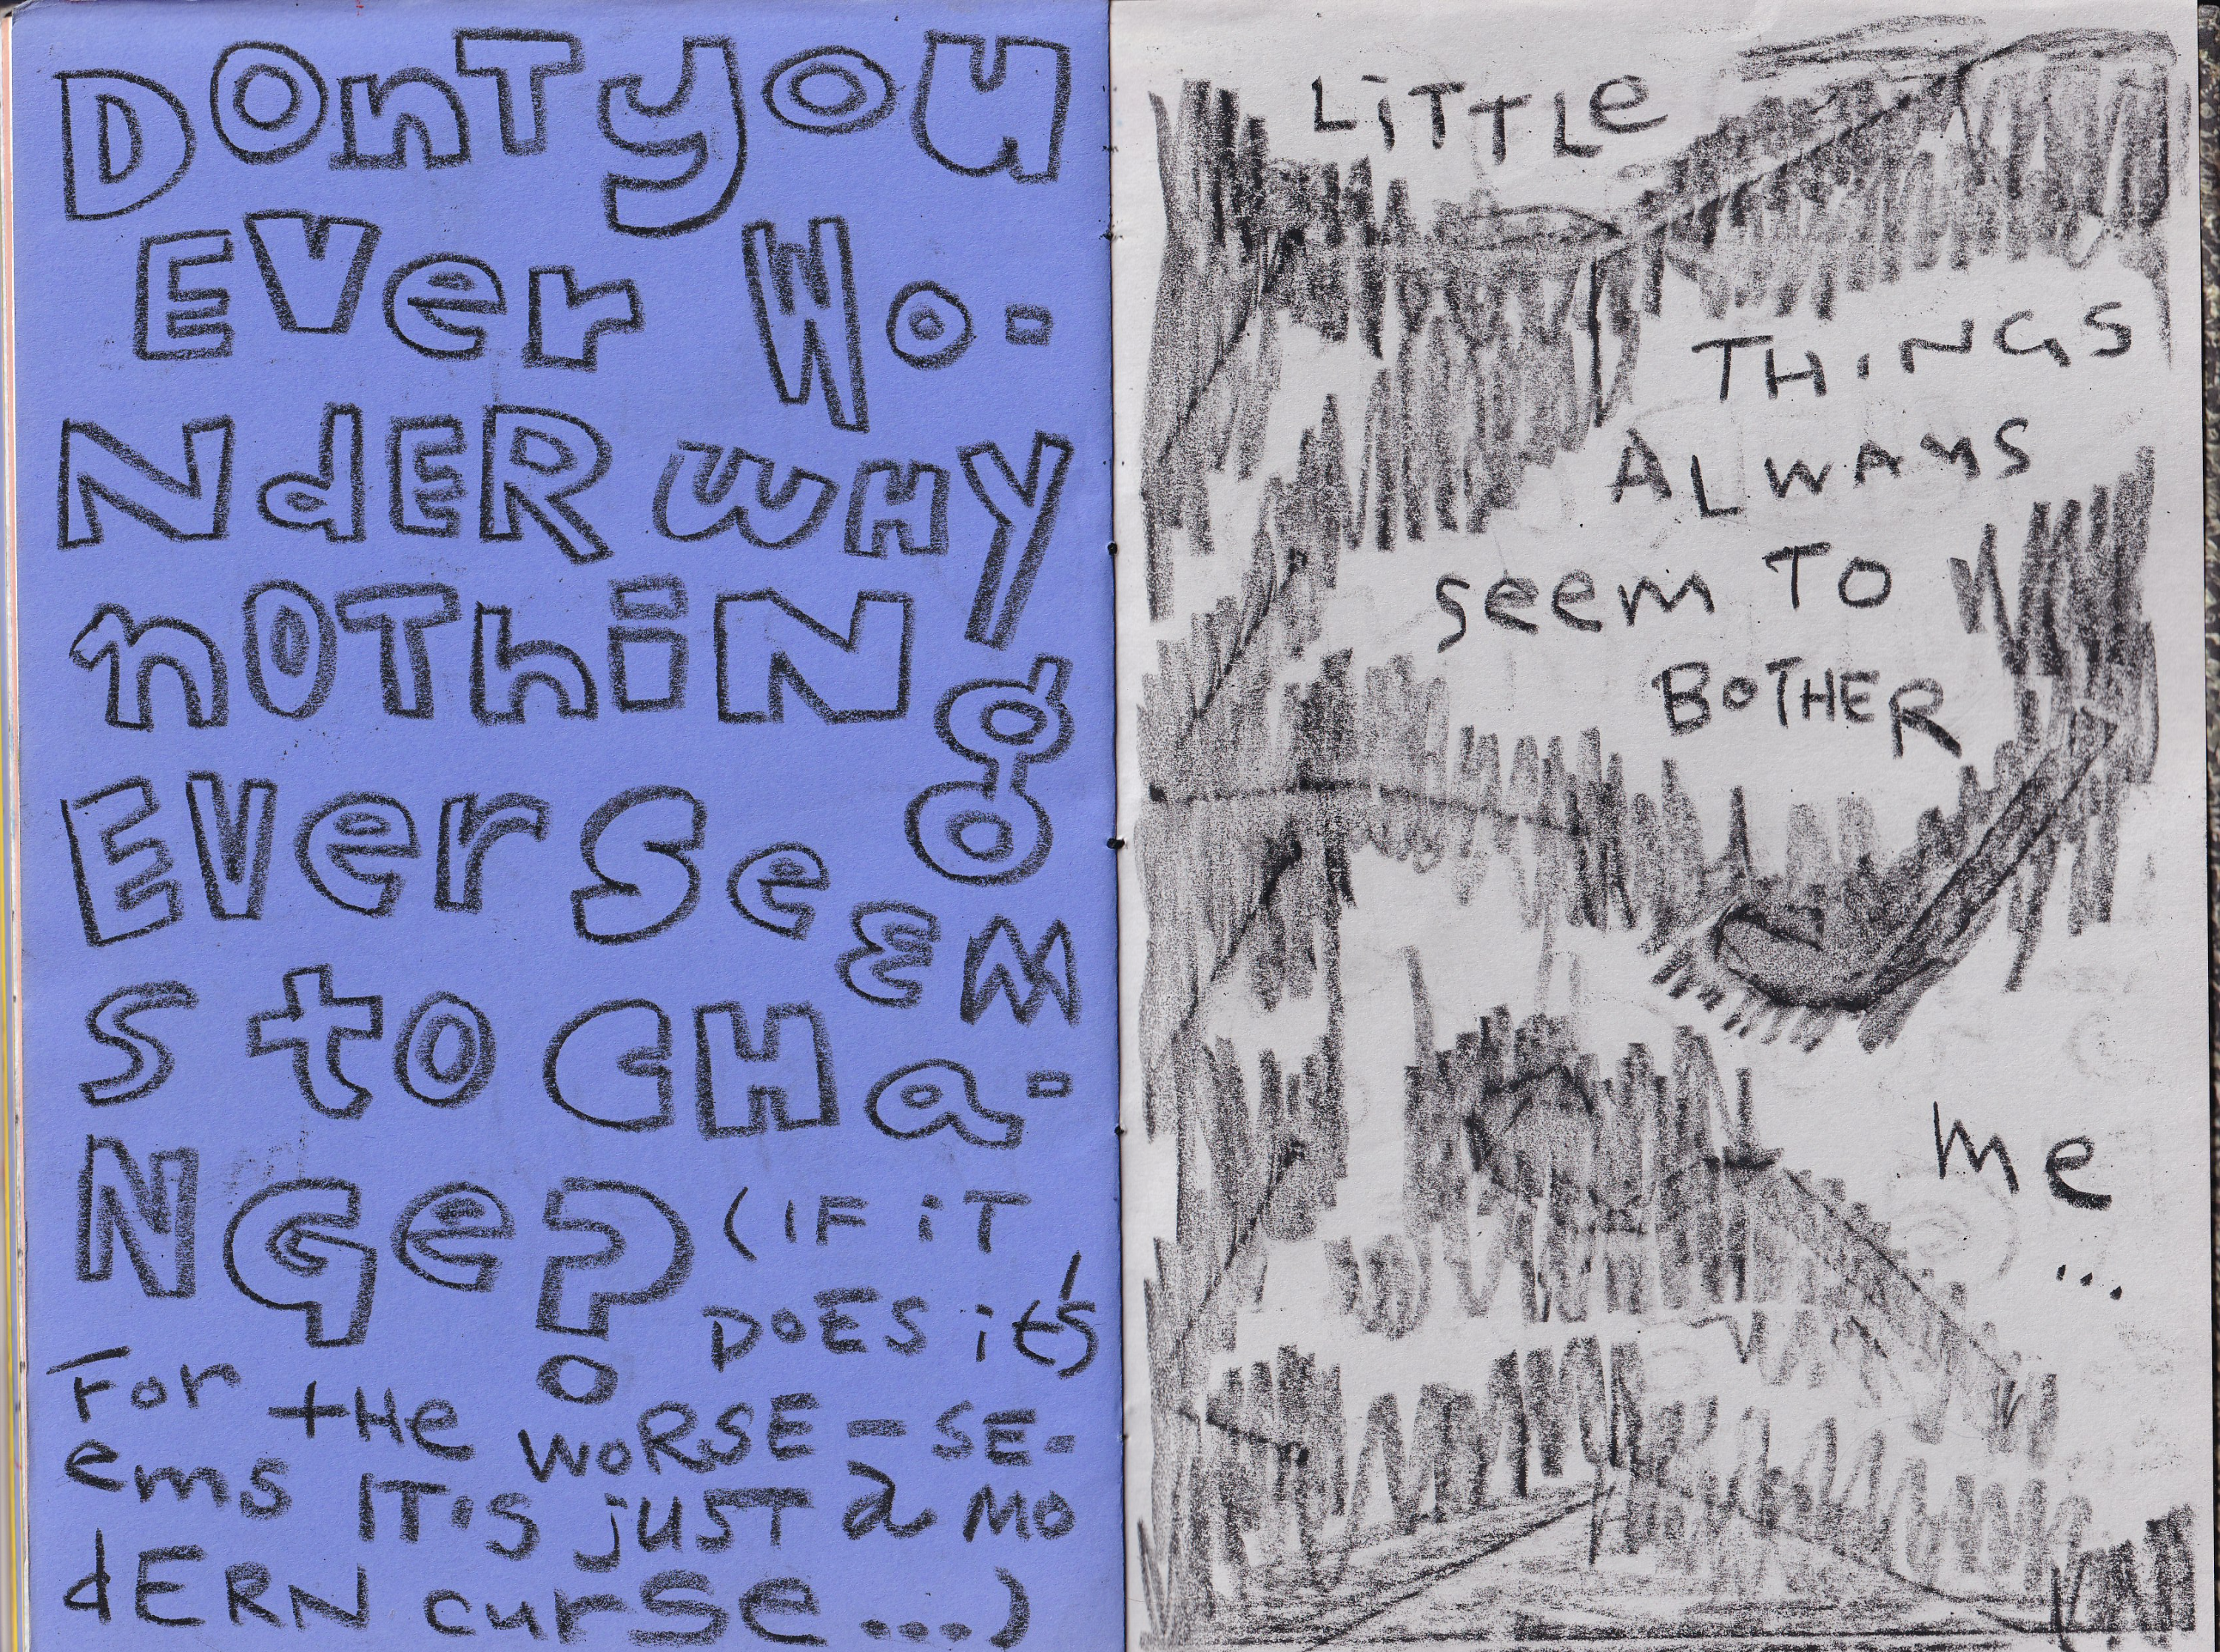 DOnT yOU
EVer Wo-
NdER WHY
nOThiNg
EVer SeEM
S tO CHa-
NGe? (IF iT
DOES it's
For tHe WORSE - SE-
ems IT'S juST a MO
dERN curse ...)
LiTTLe
THiNGS
ALWAYS
seem TO
BOTHER
me
...